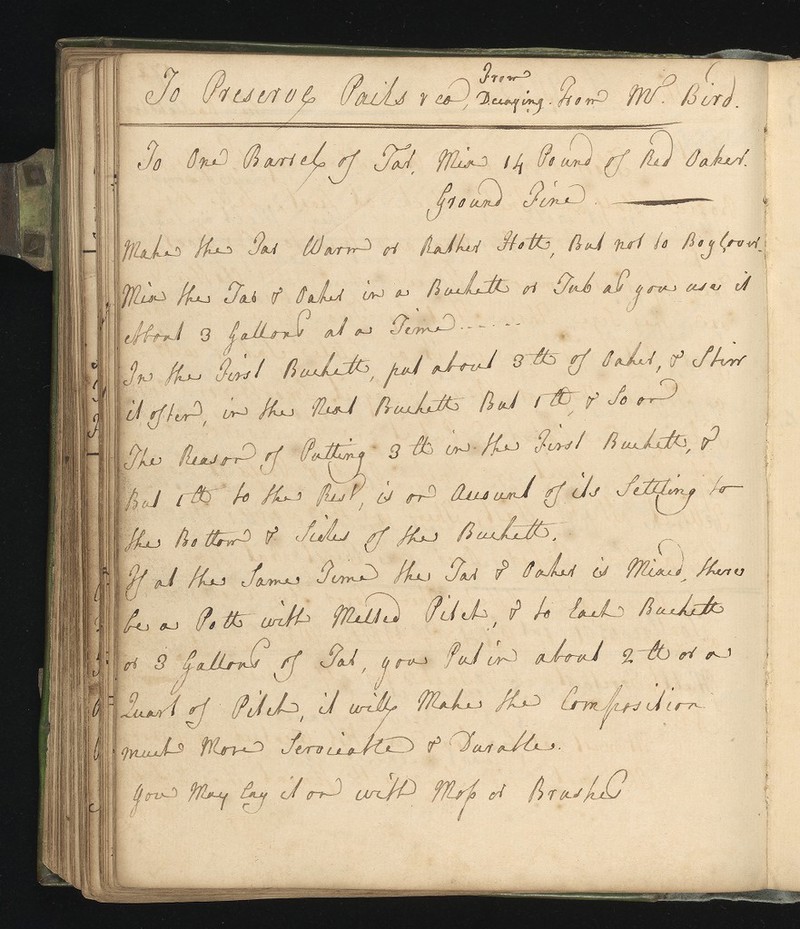 To Preserve Pails &ca, From Decaying. From Mr. Bird.
To One Barrel of Tar, Mix 14 Pound of Red Oaker.
Ground Fine.
Make the Tar Warm or Rather Hott, But not to Boyl over.
Mix the Tar & Oaker in a Buckett or Tub as you use it
About 3 Gallons at a Time......
In the First Buckett, put about 3 tt of Oaker, & Stirr
it often, in the Next Buckett But 1 tt, & So on
The Reason of Putting 3 tt in the First Buckett, &
But 1 tt to the Rest, is on Account of its Settling to
the Bottom & Sides of the Buckett.
If at the Same Time the Tar & Oaker is Mixed, there
be a Pott with Melted Pitch, & to Each Buckett
or 3 Gallons of Tar, you Put in about 2 tt or a
Quart of Pitch, it will Make the Composition
much More Serviceable & Durable.
You May lay it on with Mops or Brushes